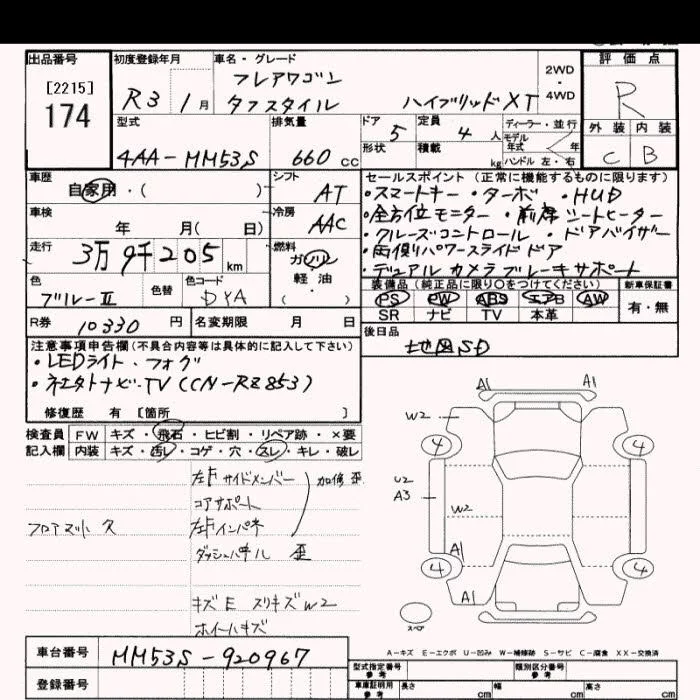 出品番号
[2215]
174
初度登録年月
R3 1月
車名・グレード
フレアワゴン
タフスタイル ハイブリッドXT
2WD
4WD
評価点
R
外装 内装
C B
型式
4AA-MM53S
排気量
660 cc
ドア
5
定員
4 人
形状
積載
kg
ディーラー・並行
モデル
年式 年
ハンドル 左・右
車歴
自家用・( )
シフト
AT
車検
年 月( 日)
冷房
AAC
走行
3万9千205 km
燃料
ガソリン
軽油
・( )
色
ブルーⅡ
色替
色コード
DYA
R券
10330 円
名変期限 月 日
セールスポイント (正常に機能するものに限ります)
・スマートキー ・ターボ ・HUD
・全方位モニター ・前席シートヒーター
・クルーズコントロール ・ドアバイザー
・両側パワースライドドア
・デュアルカメラブレーキサポート
装備品(純正品に限り○をつけてください)
PS PW ABS エアB AW
SR ナビ TV 本革
新車保証書
有・無
後日品
地図SD
注意事項申告欄(不具合内容等は具体的に記入して下さい)
・LEDライト・フォグ
・社外ナビ・TV(CN-RZ853)
修復歴 有 [箇所 ]
検査員
記入欄
FW キズ・飛石・ヒビ割・リペア跡・×要
内装 キズ・汚レ・コゲ・穴・スレ・キレ・破レ
左Fサイドメンバー
加修 歪
コアサポート
フロアマット欠
左Fインパネ
ダッシュパネル 歪
キズE スリキズW2
ホイールキズ
A1
A1
W2
4
4
U2
A3
W2
A1
4
4
A1
スペア
A-キズ E-エクボ U-凹み W-補修跡 S-サビ C-腐食 XX-交換済
車台番号
MM53S-920967
登録番号
型式指定番号
参考
類別区分番号
参考
車庫証明用
参考
長さ cm
幅 cm
高さ cm